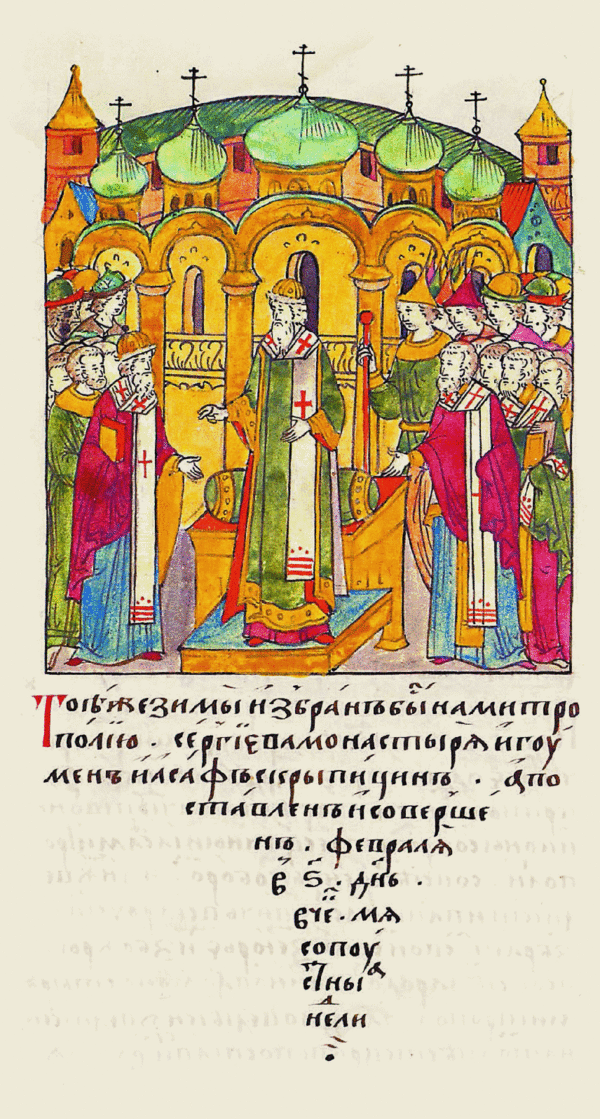 Тоѣже зимы и҆збранъ быⷭ҇ на митро
полїю . сергїева монастырѧ и҆гоу
менъ і҆асафъ скрыпицинъ . а҆ по
ставленъ и҆ соверше
нъ . февралѧ
в ѕ҃ . д҃нь .
в чеⷮ . мѧ
сопоу
стныѧ
неⷣли